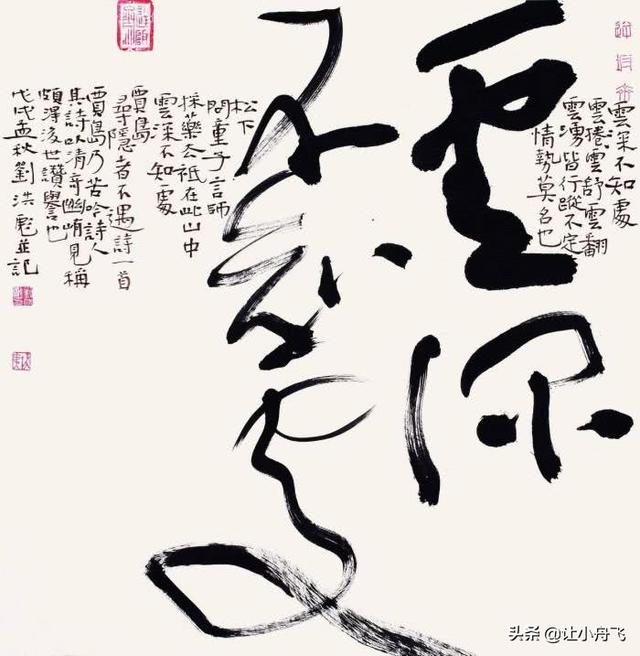 雲深不知處
雲捲雲舒雲翻
雲湧皆行蹤不定
情勢莫名也
雲深
不知處
松下
問童子言師
採藥去祗在此山中
雲深不知處
賈島
尋隱者不遇詩一首
賈島乃苦吟詩人
其詩以清奇幽峭見稱
頗得後世讚譽也
戊戌孟秋劉洪彪並記
头条 @让小舟飞